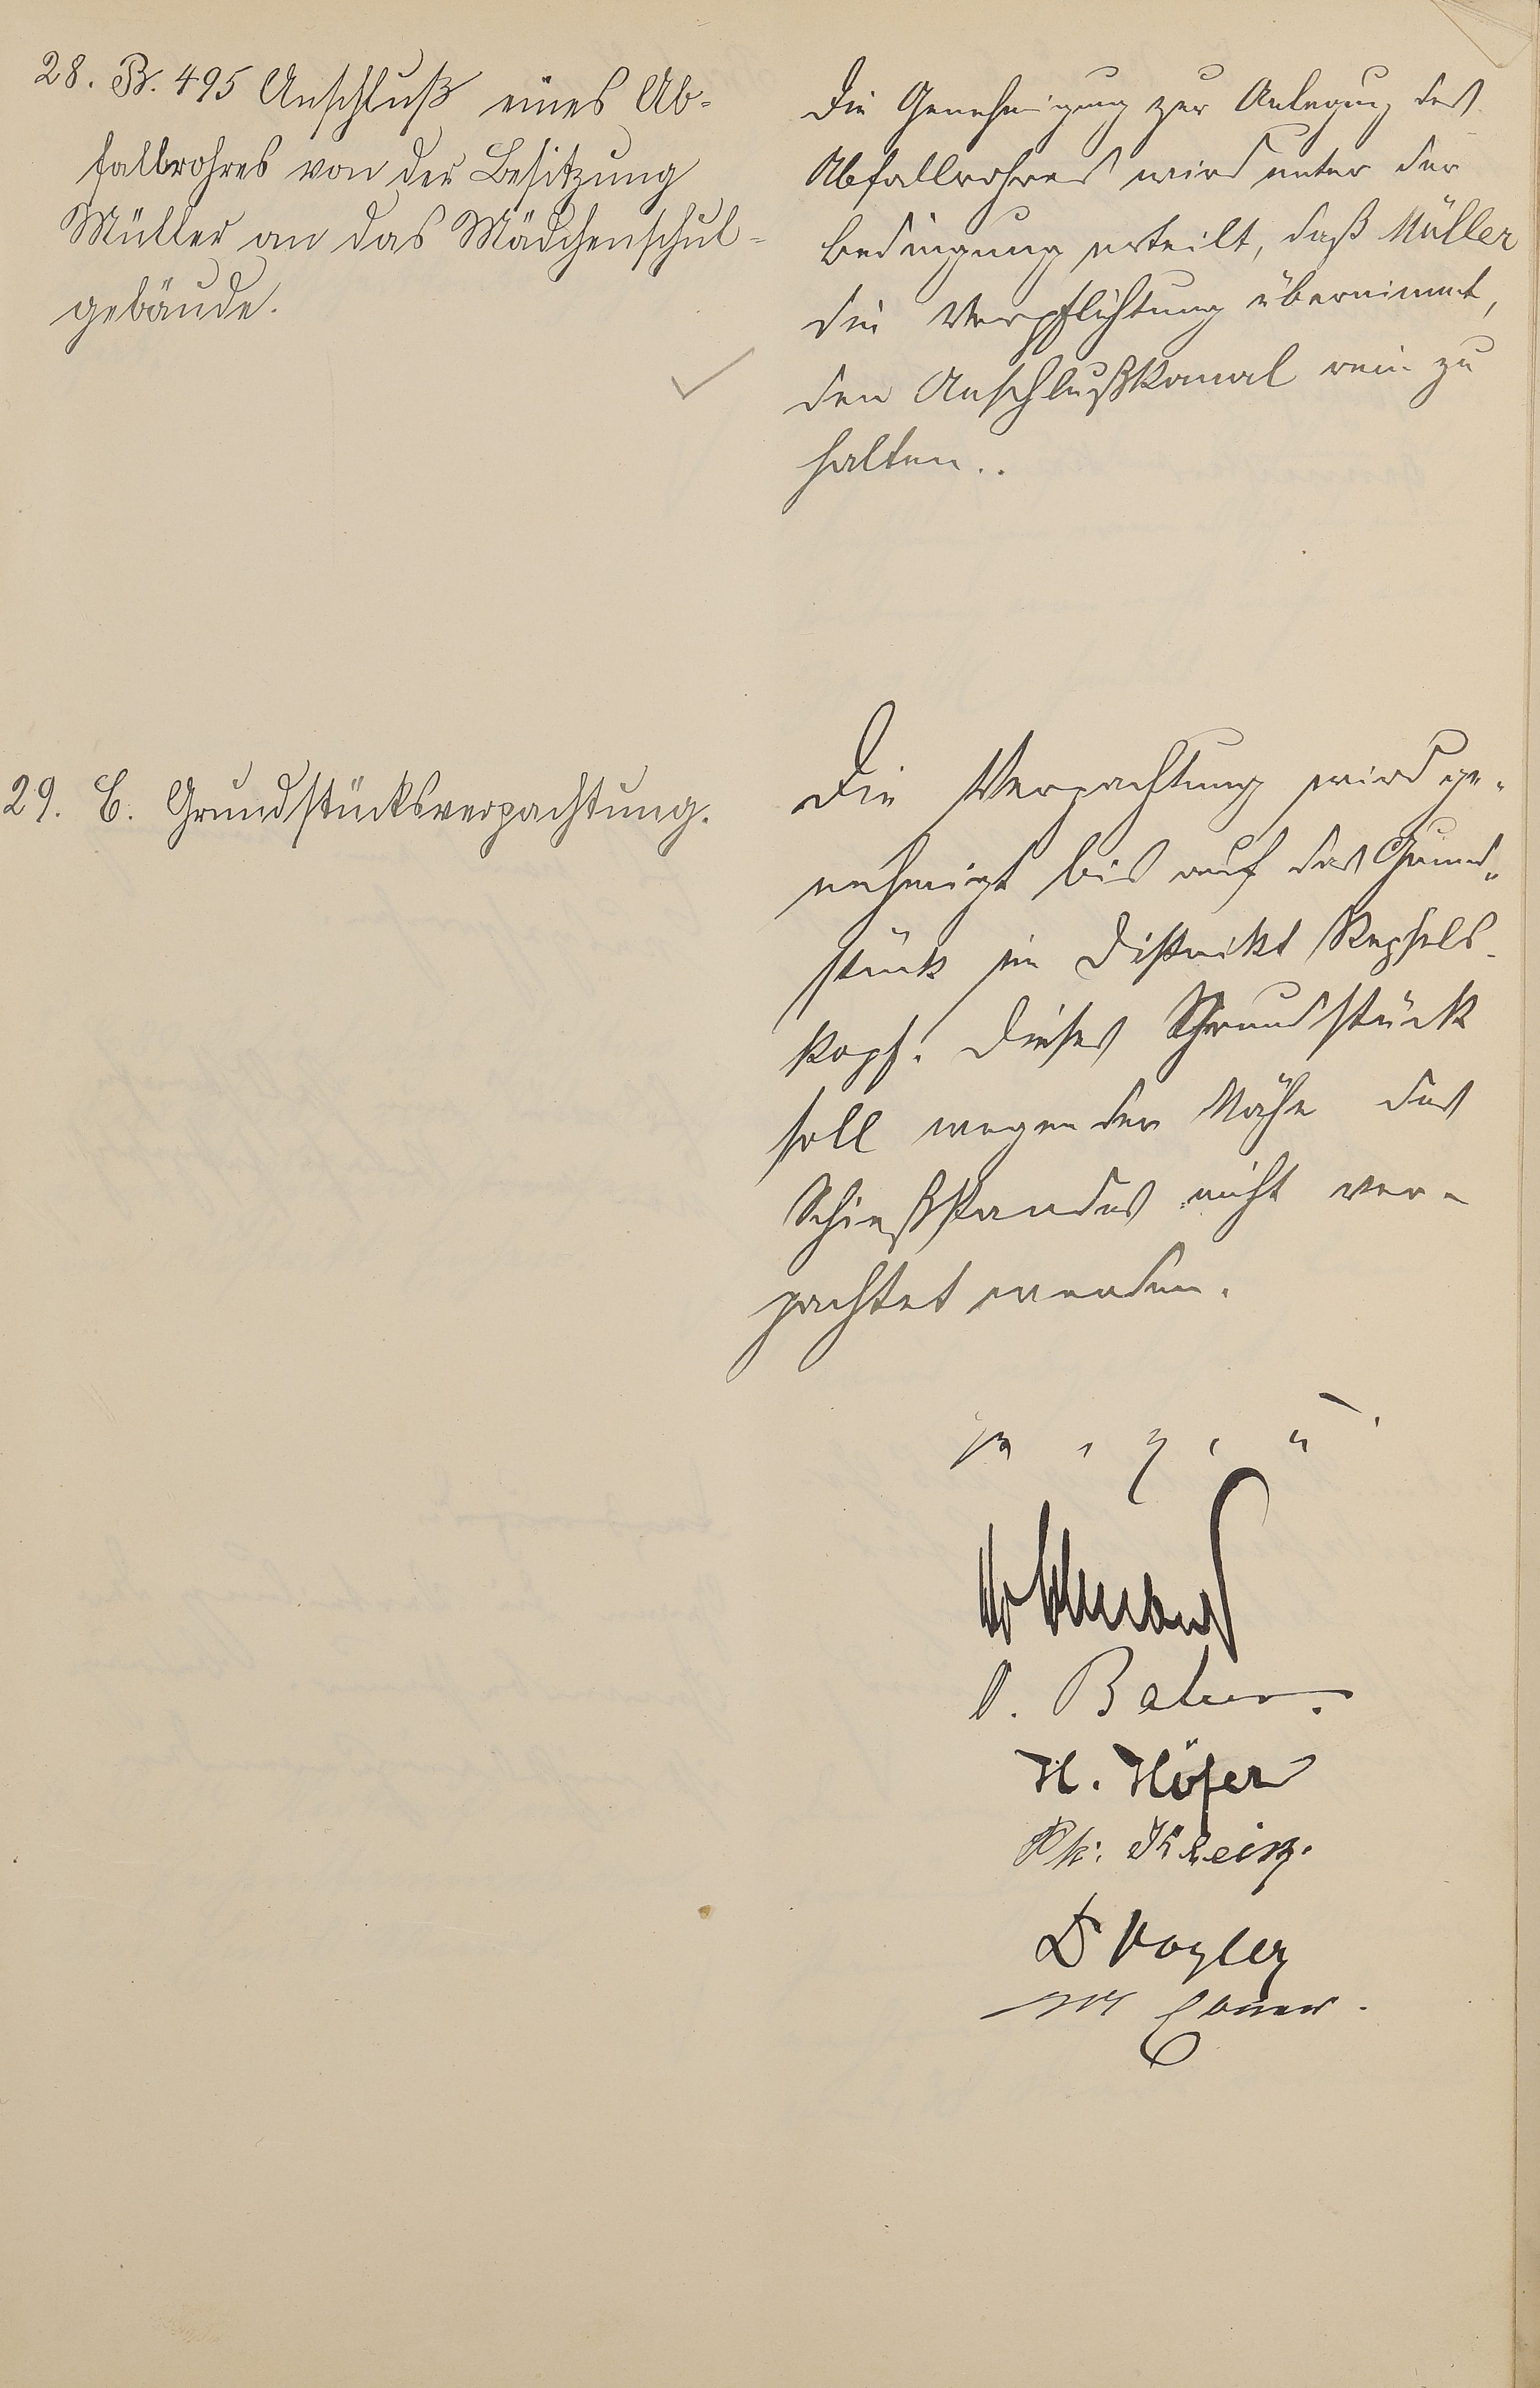 28. B. 495 Anschluß eines Ab-
fallrohres von der Besitzung
Müller an das Mädchenschul-
gebäude.
Die Genehmigung zur Anlegung des
Abfallrohres wird unter der
Bedingung erteilt, daß Müller
die Verpflichtung übernimmt,
den Anschlußkanal rein zu
halten..
29. C. Grundstücksverpachtung.
Die Verpachtung wird ge-
nehmigt bis auf das Grund-
stück im Distrikt
kopf. Dieses Grundstück
soll wegen der Nähe des
Schießstandes nicht ver-
pachtet werden.
O. Balzer.
H. Höfer
D Vogler